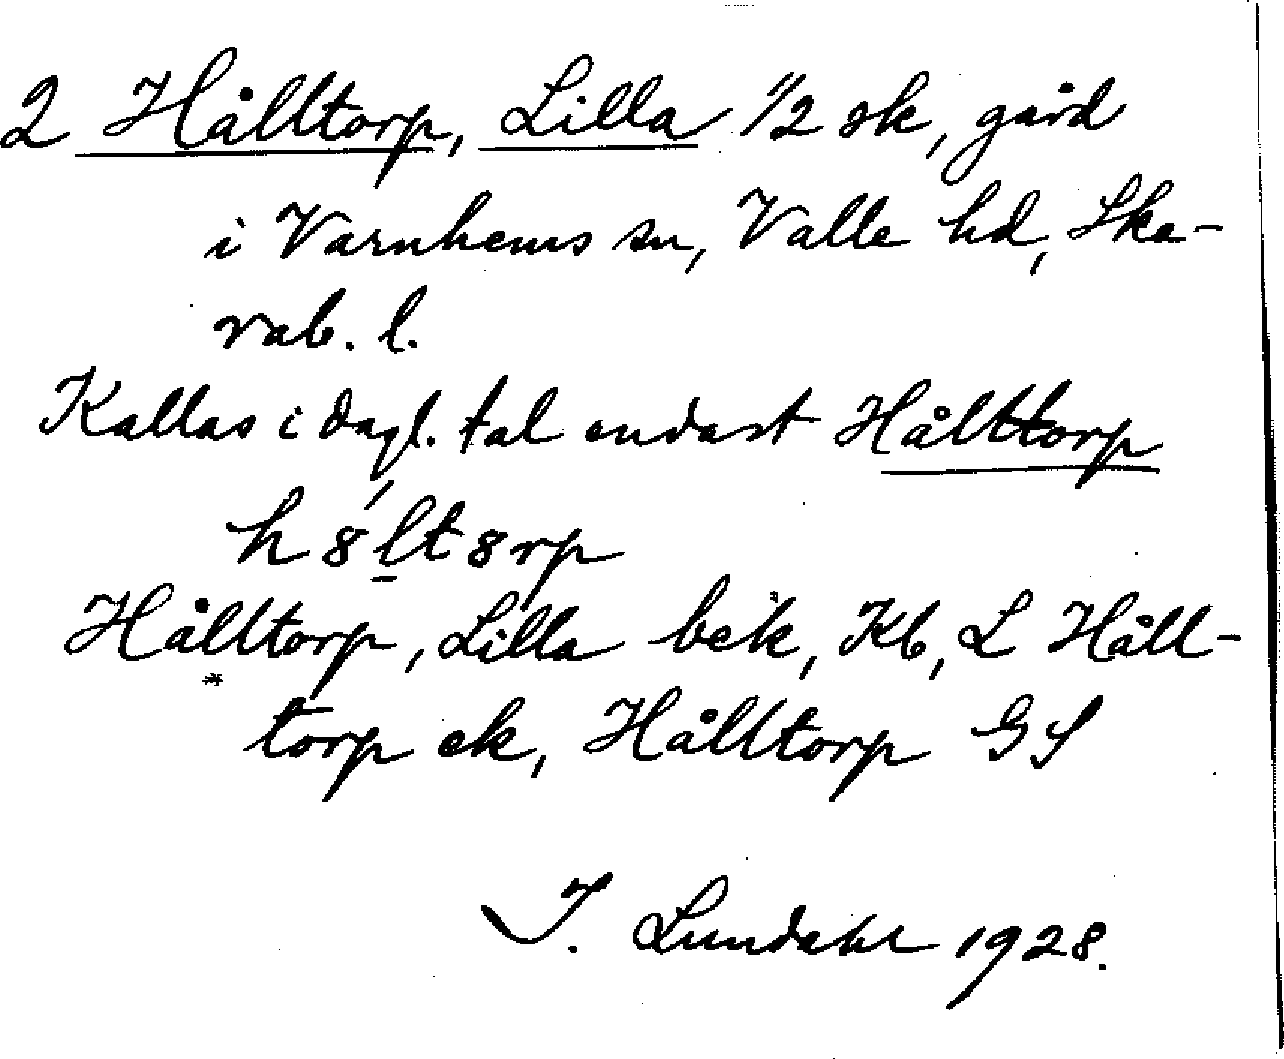 2 Hålltorp, Lilla 1/2 sk, gård
i Varnhems sn, Valle hd, Ska-
rab. l.
Kallas i dagl. tal endast Hålltorp
h8́l̠t8rp
Hålltorp, Lilla bek, Kb, L Håll-
torp ek, Hålltorp GS
I. Lundahl 1928.